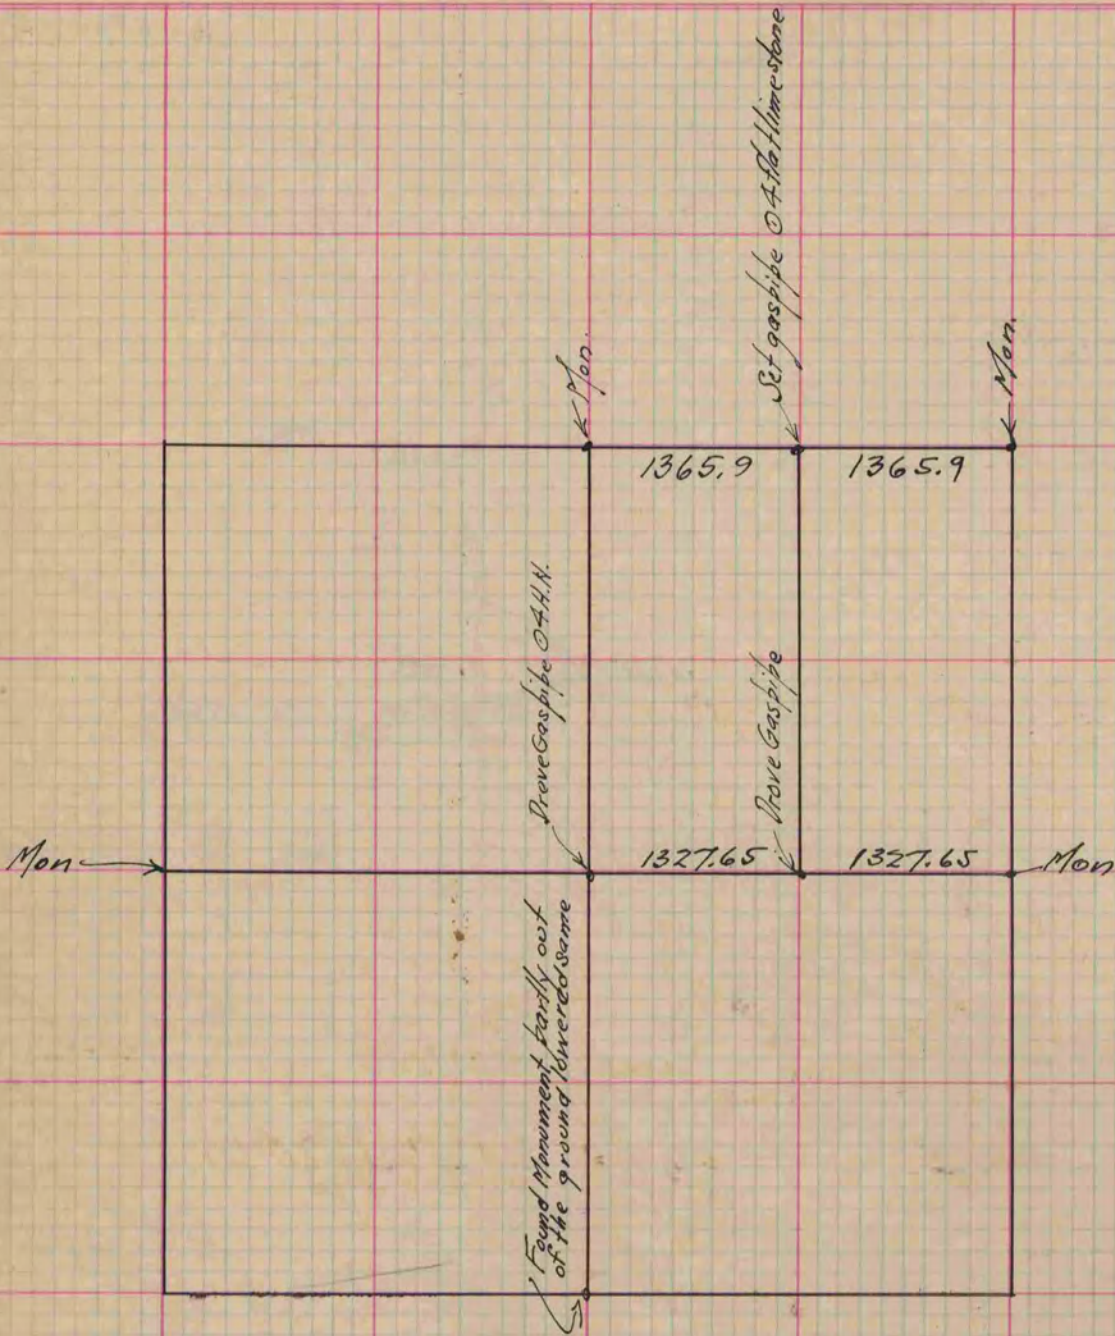 Set gaspipe ⊙ 4 flat limestone
Mon.
Mon.
1365.9
1365.9
Drove Gaspipe ⊙ 4 H.N.
Drove Gaspipe
Mon
1327.65
1327.65
Mon
Found Monument partly out
of the ground lowered same